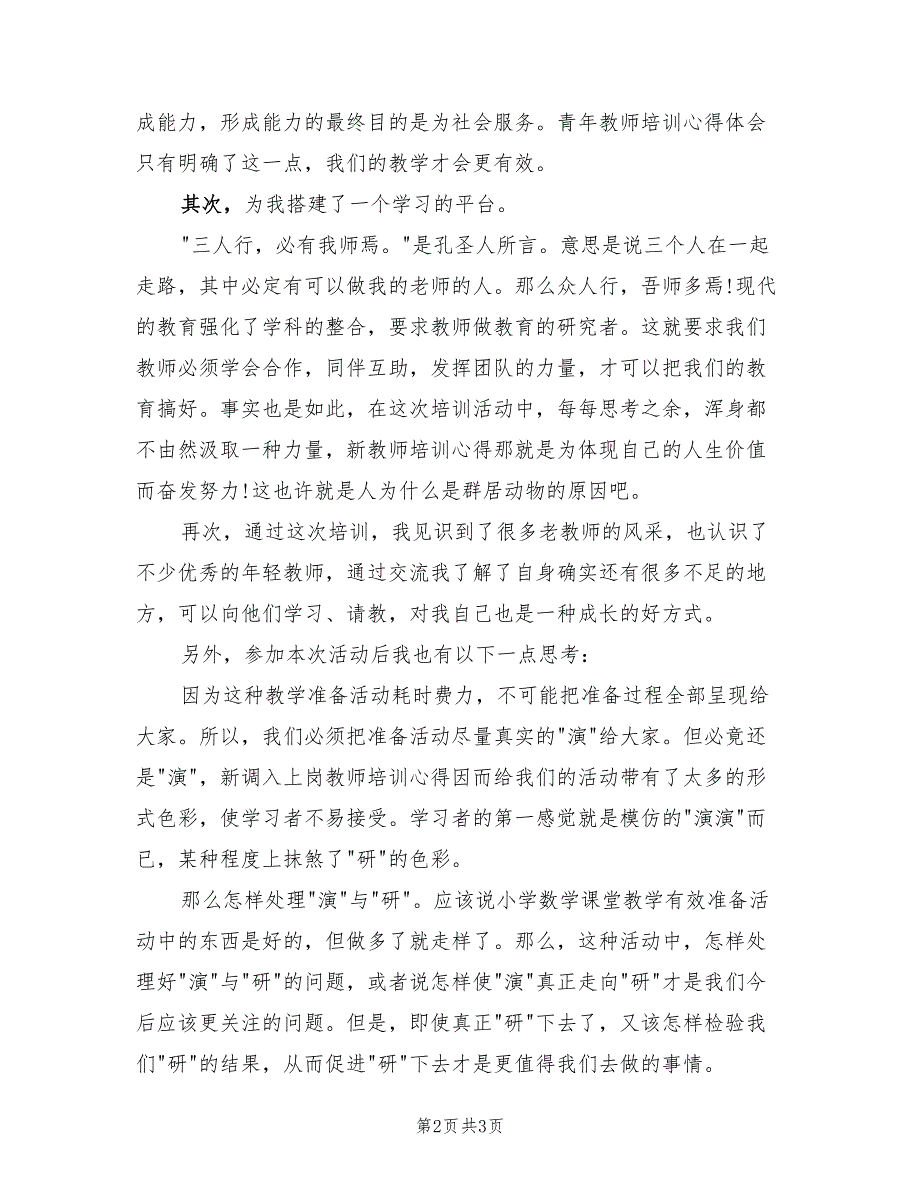 成能力，形成能力的最终目的是为社会服务。青年教师培训心得体会
只有明确了这一点，我们的教学才会更有效。
其次，为我搭建了一个学习的平台。
"三人行，必有我师焉。"是孔圣人所言。意思是说三个人在一起
走路，其中必定有可以做我的老师的人。那么众人行，吾师多焉!现代
的教育强化了学科的整合，要求教师做教育的研究者。这就要求我们
教师必须学会合作，同伴互助，发挥团队的力量，才可以把我们的教
育搞好。事实也是如此，在这次培训活动中，每每思考之余，浑身都
不由然汲取一种力量，新教师培训心得那就是为体现自己的人生价值
而奋发努力!这也许就是人为什么是群居动物的原因吧。
再次，通过这次培训，我见识到了很多老教师的风采，也认识了
不少优秀的年轻教师，通过交流我了解了自身确实还有很多不足的地
方，可以向他们学习、请教，对我自己也是一种成长的好方式。
另外，参加本次活动后我也有以下一点思考：
因为这种教学准备活动耗时费力，不可能把准备过程全部呈现给
大家。所以，我们必须把准备活动尽量真实的"演"给大家。但必竟还
是"演"，新调入上岗教师培训心得因而给我们的活动带有了太多的形
式色彩，使学习者不易接受。学习者的第一感觉就是模仿的"演演"而
已，某种程度上抹煞了"研"的色彩。
那么怎样处理"演"与"研"。应该说小学数学课堂教学有效准备活
动中的东西是好的，但做多了就走样了。那么，这种活动中，怎样处
理好"演"与"研"的问题，或者说怎样使"演"真正走向"研"才是我们今
后应该更关注的问题。但是，即使真正"研"下去了，又该怎样检验我
们"研"的结果，从而促进"研"下去才是更值得我们去做的事情。
第2页 共3页